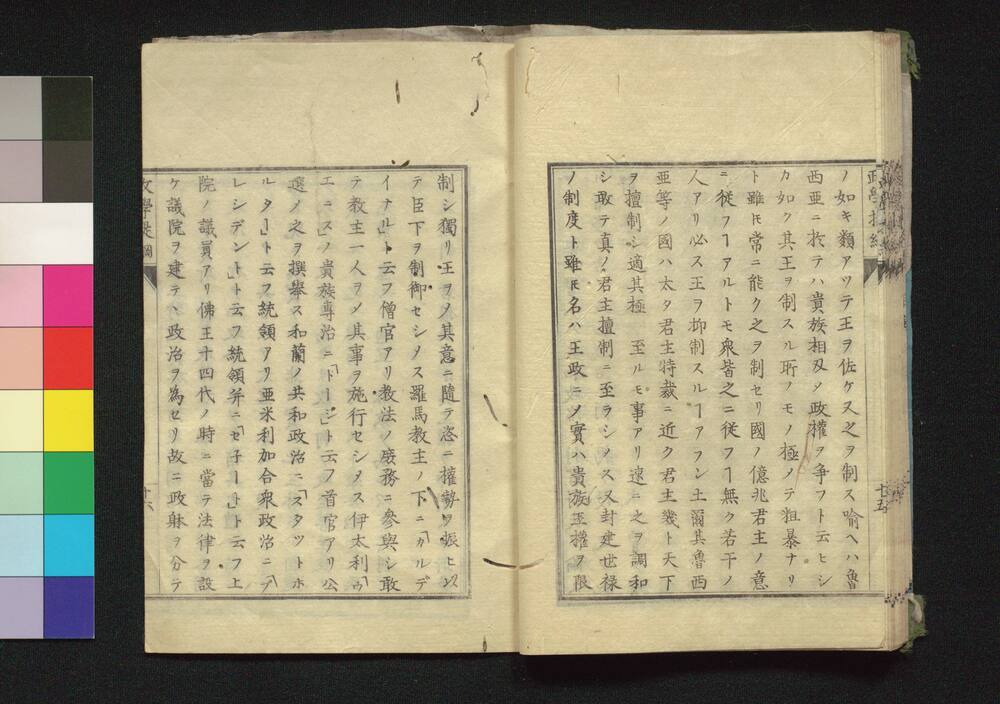 ノ如キ類アツテ王ヲ佐ケス之ヲ制ス喻ヘハ魯
西亜ニ於テハ貴族相及メ政權ヲ争フト云ヒシ
カ如ク其王ヲ制スル所ノモノ極メテ粗暴ナリ
ト雖𪜈常ニ能ク之ヲ制セリ國ノ億兆君主ノ意
ニ従フヿアルトモ衆皆之ニ従フヿ無ク若干ノ
人アリ必ス王ヲ抑制スルヿアラン土爾其魯西
亜等ノ國ハ太タ君主特裁ニ近ク君主幾ト天下
ヲ擅制シ適其極 至ルモ事アリ速ニ之ヲ調和
シ敢テ真ノ君主擅制ニ至ラシメス又封建世禄
ノ制度ト雖𪜈名ハ王政ニメ實ハ貴族王權ヲ限
制シ獨リ王ヲメ其意ニ隨テ恣ニ權勢ヲ振ヒ以
テ臣下ヲ制御セシメス羅馬教主ノ下ニ「カルデ
イナル」ト云フ僧官アリ教法ノ廢務ニ參與シ敢
テ教主一人ヲメ其事ヲ施行セシメス伊太利ウ
エニス」ノ貴族專治ニ「ドージ」ト云フ首官アリ公
選メ之ヲ撰擧ス和蘭ノ共和政治ニ「スタットホ
ルタ」ト云フ統領アリ亜米利加合衆政治ニ「プ
レシデント」ト云フ統領并ニ「セ子ート」ト云フ上
院ノ議員アリ佛王十四代ノ時ニ當テ法律ヲ設
ケ議院ヲ建テヽ政治ヲ為セリ故ニ政躰ヲ分テ
十五
十六